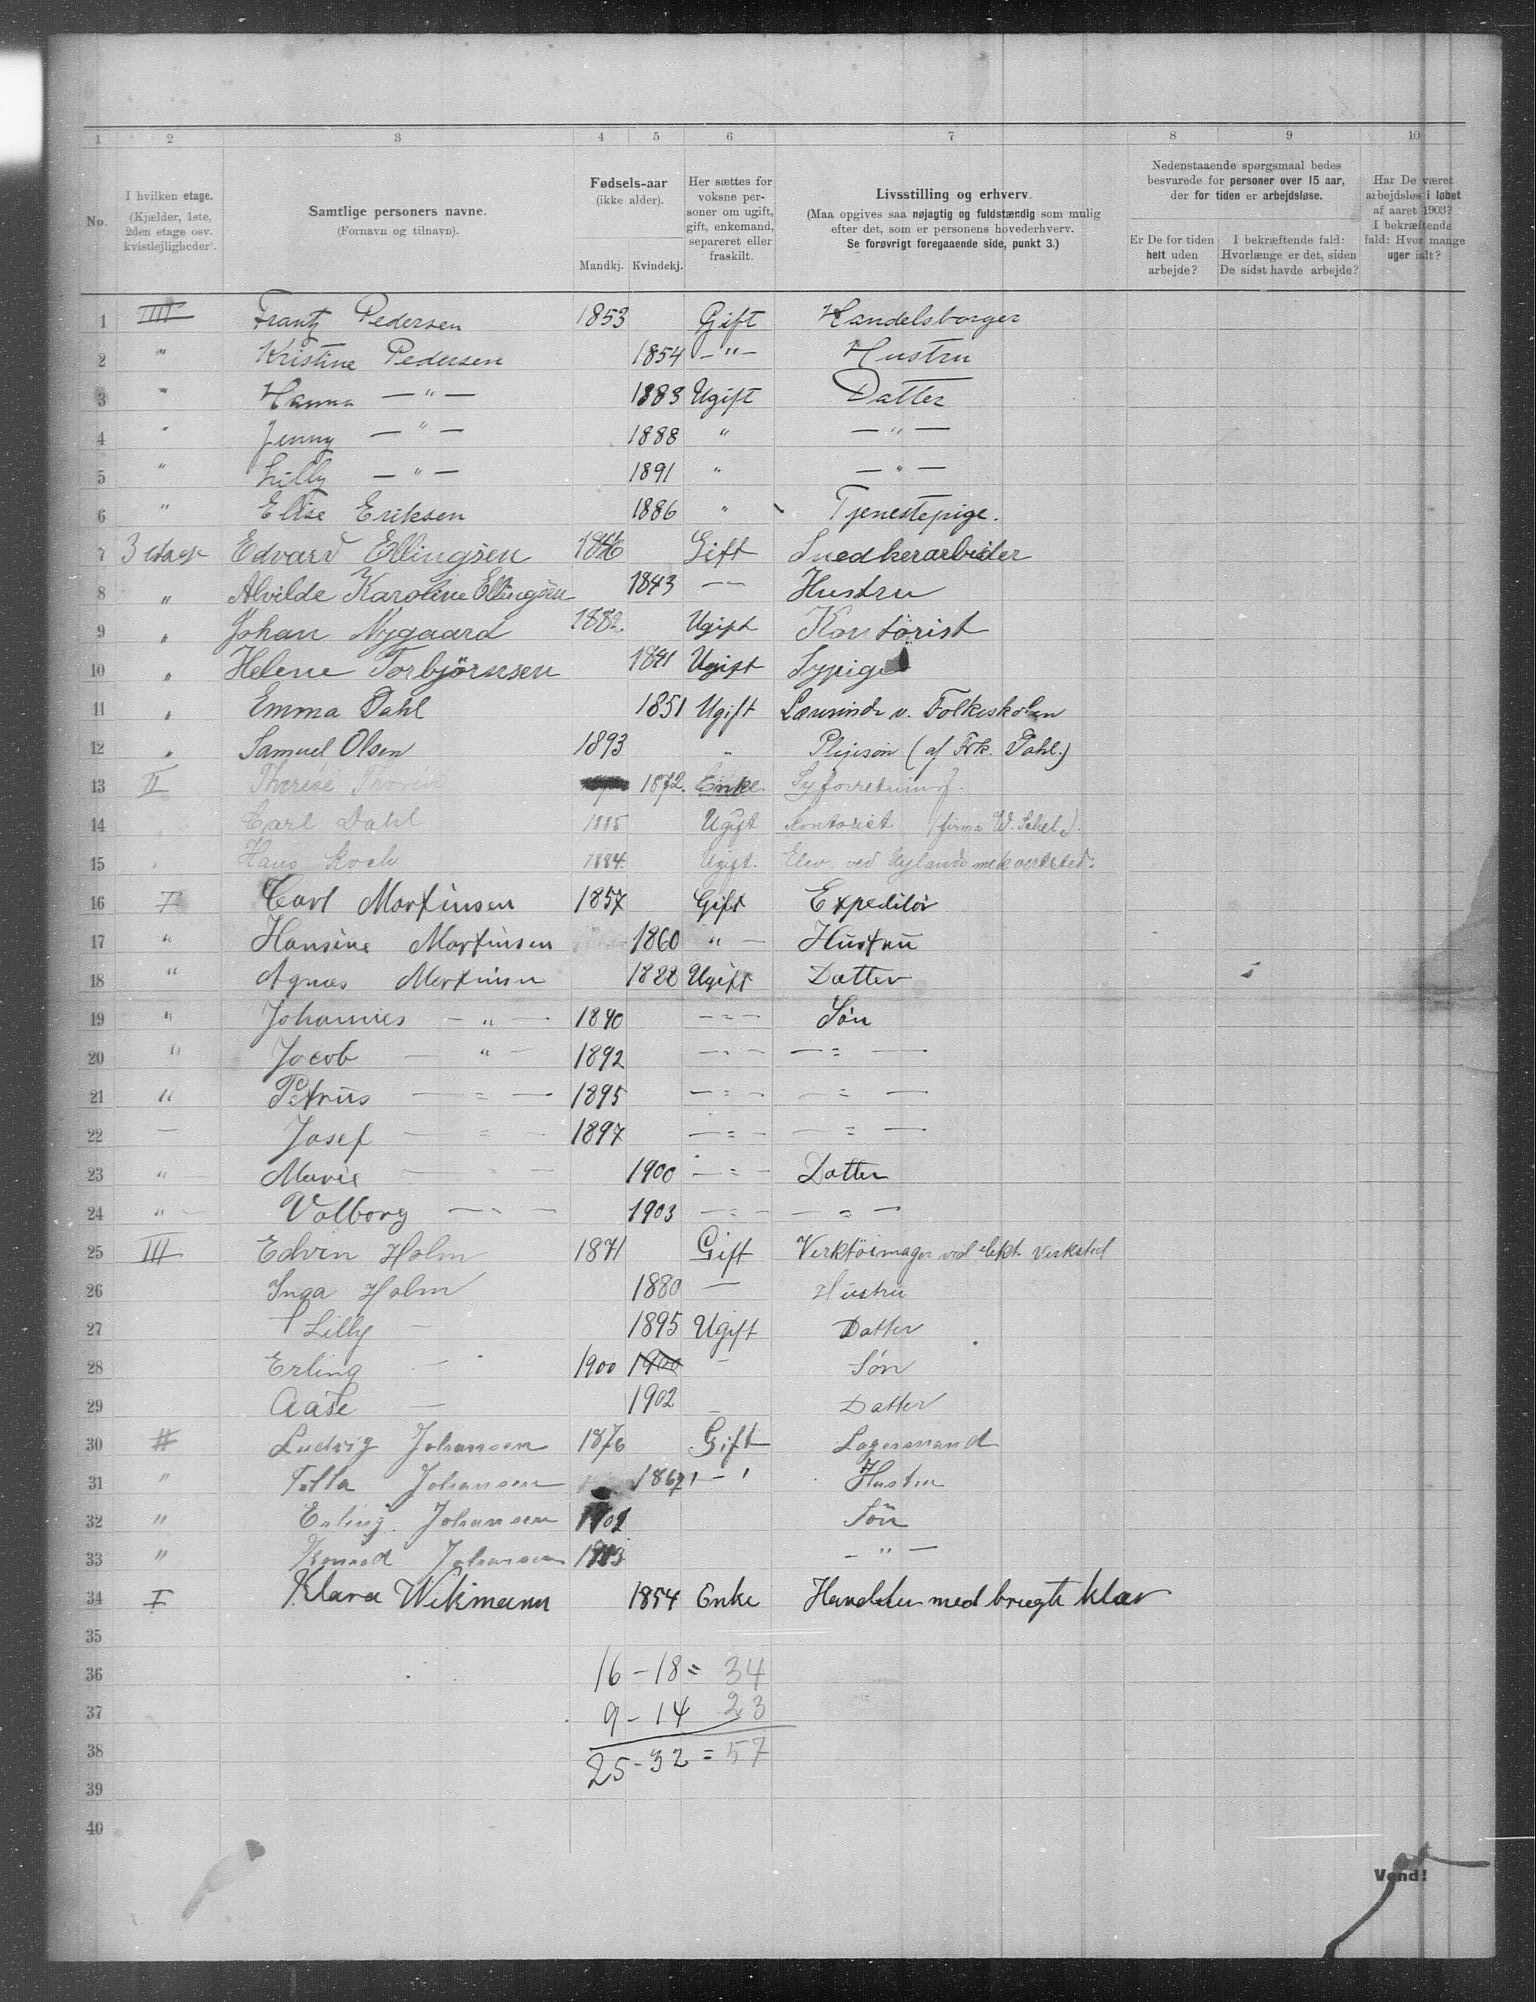 1 2 3 4 5 6 7 8 9 10
No. I hvilken etage. (Kjælder, 1ste, 2den etage osv. kvistlejligheder). Samtlige personers navne. (Fornavn og tilnavn). Fødsels-aar (ikke alder). Mandkj. Kvindekj. Her sættes for voksne personer om ugift, gift, enkemand, separeret eller fraskilt. Livsstilling og erhverv. (Maa opgives saa nøjagtig og fuldstændig som mulig efter det, som er personens hovederhverv. Se forøvrigt foregaaende side, punkt 3.) Nedenstaaende spørgsmaal bedes besvarede for personer over 15 aar, der for tiden er arbejdsløse. Er De for tiden helt uden arbejde? I bekræftende fald: Hvorlænge er det, siden De sidst havde arbejde? Har De været arbejdsløs i løbet af aaret 1903? I bekræftende fald: Hvor mange uger ialt?
1 IIII Frantz Pedersen 1853 Gift Handelsborger
2 " Kristine Pedersen 1854 — " — Hustru
3 " Hanna — " — 1883 Ugift Datter
4 " Jenny — " — 1888 " — " —
5 " Lilly — " — 1891 " — " —
6 " Elise Eriksen 1886 " Tjenestepige.
7 3 etage Edvard Ellingsen Gift Snedkerarbeider
8 " Alvilde Karoline Ellingsen 1843 — Hustru
9 " Johan Nygaard 1882. Ugift Kontorist
10 " Helene Torbjörnsen 1841 Ugift Sypige
11 " Emma Dahl 1851 Ugift Lærerinde v. Folkeskolen
12 " Samuel Olsen 1893 " Plejesön (af Frk. Dahl.)
13 II Therese 1872. Enke. Syforretning.
14 Carl Dahl 1885 Ugift Kontorist (firma W.
15 Hans Koch 1884. Ugift. Elev ved Nylands mek værksted.
16 I Carl Martinsen 1857 Gift Expeditör
17 " Hansine Martinsen 1860 " — Hustru
18 " Agnes Martinsen 1888 Ugift Datter
19 " Johannes — " — 1890 — " — Sön
20 " Jacob — " — 1892 — " — — " —
21 " Petrus — " — 1895 — " — — " —
22 — Josef — " — 1897 — " — — " —
23 " Marie — " — 1900 — " — Datter
24 " Valborg — " — 1903 — " — — " —
25 III Edvin Holm 1871 Gift Verktöimager ved elekt. Verksted
26 Inga Holm 1880 — Hustru
27 Lilly — 1895 Ugift Datter
28 Erling — 1900 1900 — Sön
29 Aase — 1902 — Datter
30 # Ludvig Johansen 1876 Gift Lagermand
31 " Johansen 1867 — " Hustru
32 " Erling Johansen 1902 Sön
33 " Konrad Johansen 1903 — " —
34 I Klara Wikmann 1854 Enke Handler med brugte klær
35
36 16 — 18 = 34
37 9 — 14 23
38 25 — 32 = 57
39
40
Vend!